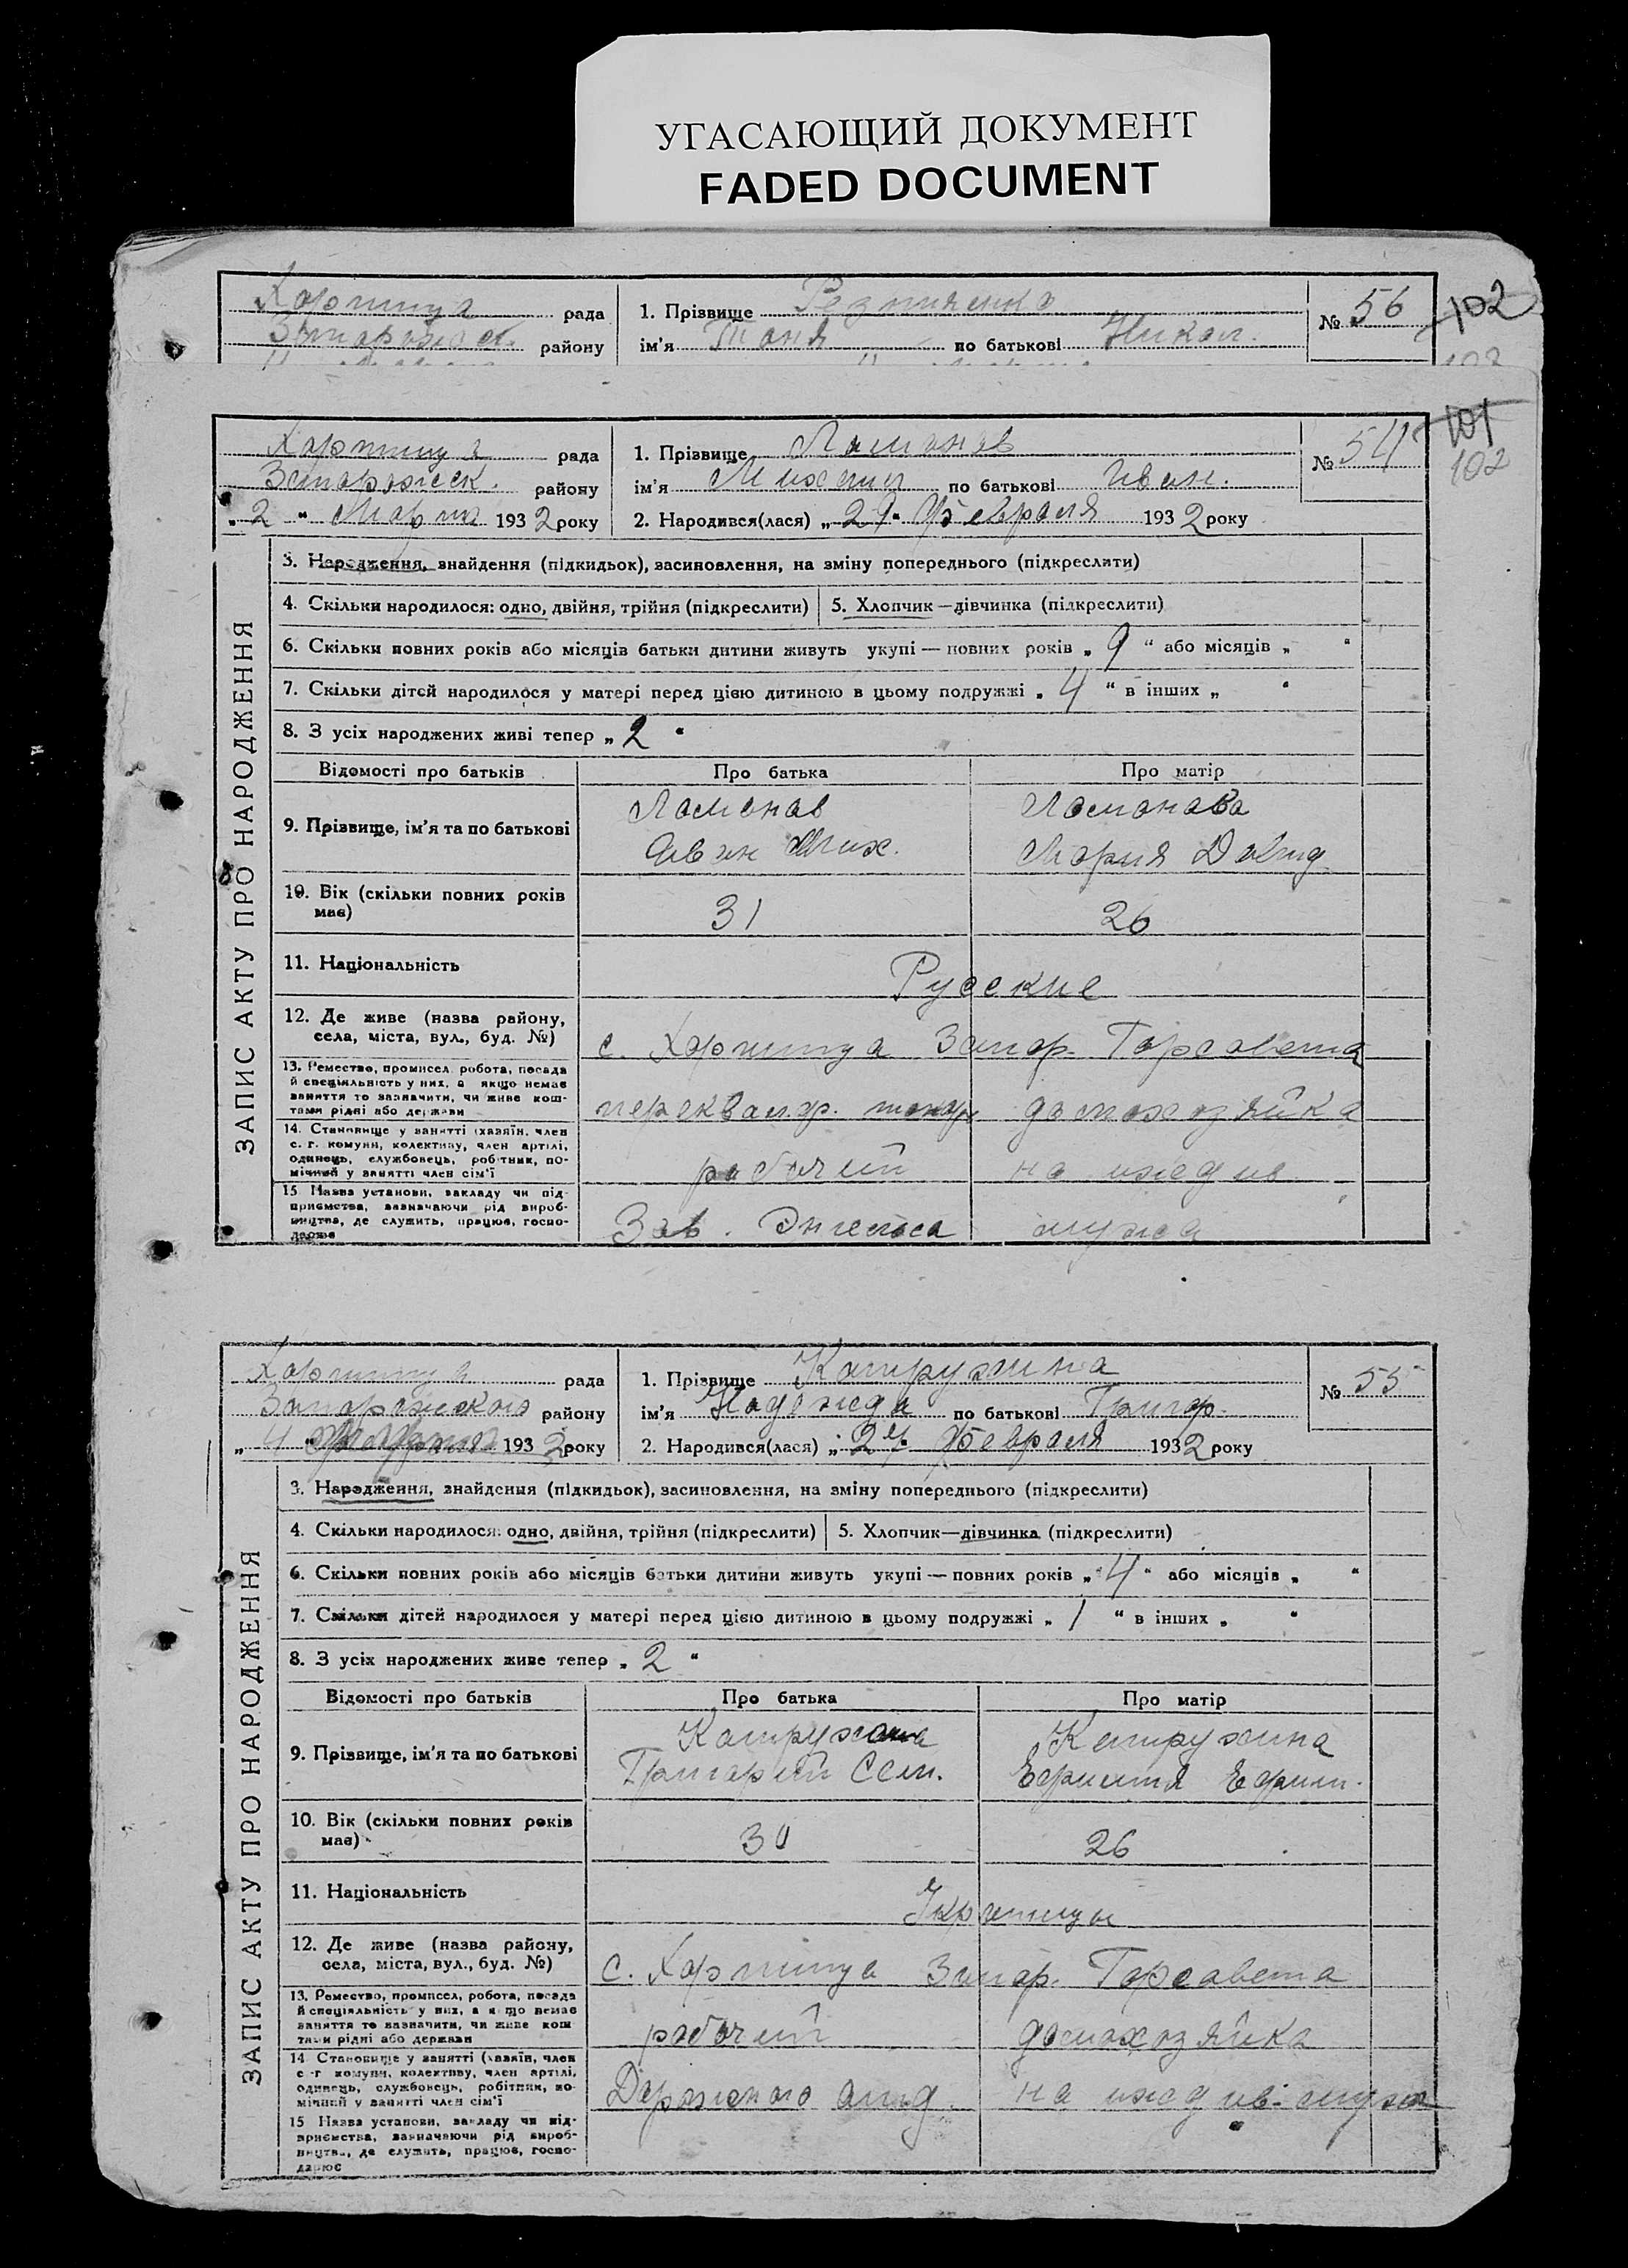 УГАСАЮЩИЙ ДОКУМЕНТ
FADED DOCUMENT
Хортица рада
Запорожск. району
1. Прізвище Резниченко
ім'я Таня по батькові Никол.
№ 56
102
Хортица рада
Запорожск. району
„2“ Марта 1932 року
1. Прізвище Ломонов
ім'я Михаил по батькові Иван.
2. Народився(лася) „29“ Февраля 1932 року
№ 54
101
102
ЗАПИС АКТУ ПРО НАРОДЖЕННЯ
3. Народження, знайдення (підкидьок), засиновлення, на зміну попереднього (підкреслити)
4. Скільки народилося: одно, двійня, трійня (підкреслити)
5. Хлопчик—дівчинка (підкреслити)
6. Скільки повних років або місяців батьки дитини живуть укупі — повних років „9“ або місяців „ “
7. Скільки дітей народилося у матері перед цією дитиною в цьому подружжі „4“ в інших „ “
8. З усіх народжених живі тепер „2“
Відомості про батьків Про батька Про матір
9. Прізвище, ім'я та по батькові
Ломонов
Иван Мих.
Ломонова
Мария Давид.
10. Вік (скільки повних років
має)
31 26
11. Національність
Русские
12. Де живе (назва району,
села, міста, вул., буд. №)
с. Хортица Запор. Горсовета
13. Ремество, промисел, робота, посада
й спеціяльність у них, а якщо немає
заняття то зазначити, чи живе кош-
тами рідні або держави
токарь домохозяйка
14. Становище у занятті (хазяїн, член
с. г. комуни, колективу, член артілі,
одинець, службовець, робітник, по-
мічний у занятті член сім'ї
рабочий на иждив.
15 Назва установи, закладу чи під-
приємства, зазначаючи рід вироб-
ництва, де служить, працює, госпо-
дарює
Зав. Энгельса мужа
Хортица рада
Запорожского району
„4“ Марта 1932 року
1. Прізвище Катружина
ім'я Надежда по батькові Григор.
2. Народився(лася) „24“ Февраля 1932 року
№ 55
ЗАПИС АКТУ ПРО НАРОДЖЕННЯ
3. Народження, знайдення (підкидьок), засиновлення, на зміну попереднього (підкреслити)
4. Скільки народилося: одно, двійня, трійня (підкреслити)
5. Хлопчик—дівчинка (підкреслити)
6. Скільки повних років або місяців батьки дитини живуть укупі — повних років „4“ або місяців „ “
7. Скільки дітей народилося у матері перед цією дитиною в цьому подружжі „1“ в інших „ “
8. З усіх народжених живе тепер „2“
Відомості про батьків Про батька Про матір
9. Прізвище, ім'я та по батькові
Григорий Сем.
Катружина
Ефимия Ефим.
10. Вік (скільки повних років
має)
30 26
11. Національність
Украинцы
12. Де живе (назва району,
села, міста, вул., буд. №)
с. Хортица Запор. Горсовета
13. Ремество, промисел, робота, посада
й спеціяльність у них, а якщо немає
заняття то зазначити, чи живе кош-
тами рідні або держави
рабочий домохозяйка
14. Становище у занятті (хазяїн, член
с.-г комуни, колективу, член артілі,
одинець, службовець, робітник, по-
мічний у занятті член сім'ї
на иждив. мужа
15 Назва установи, закладу чи під-
приємства, зазначаючи рід вироб-
ництва, де служить, працює, госпо-
дарює